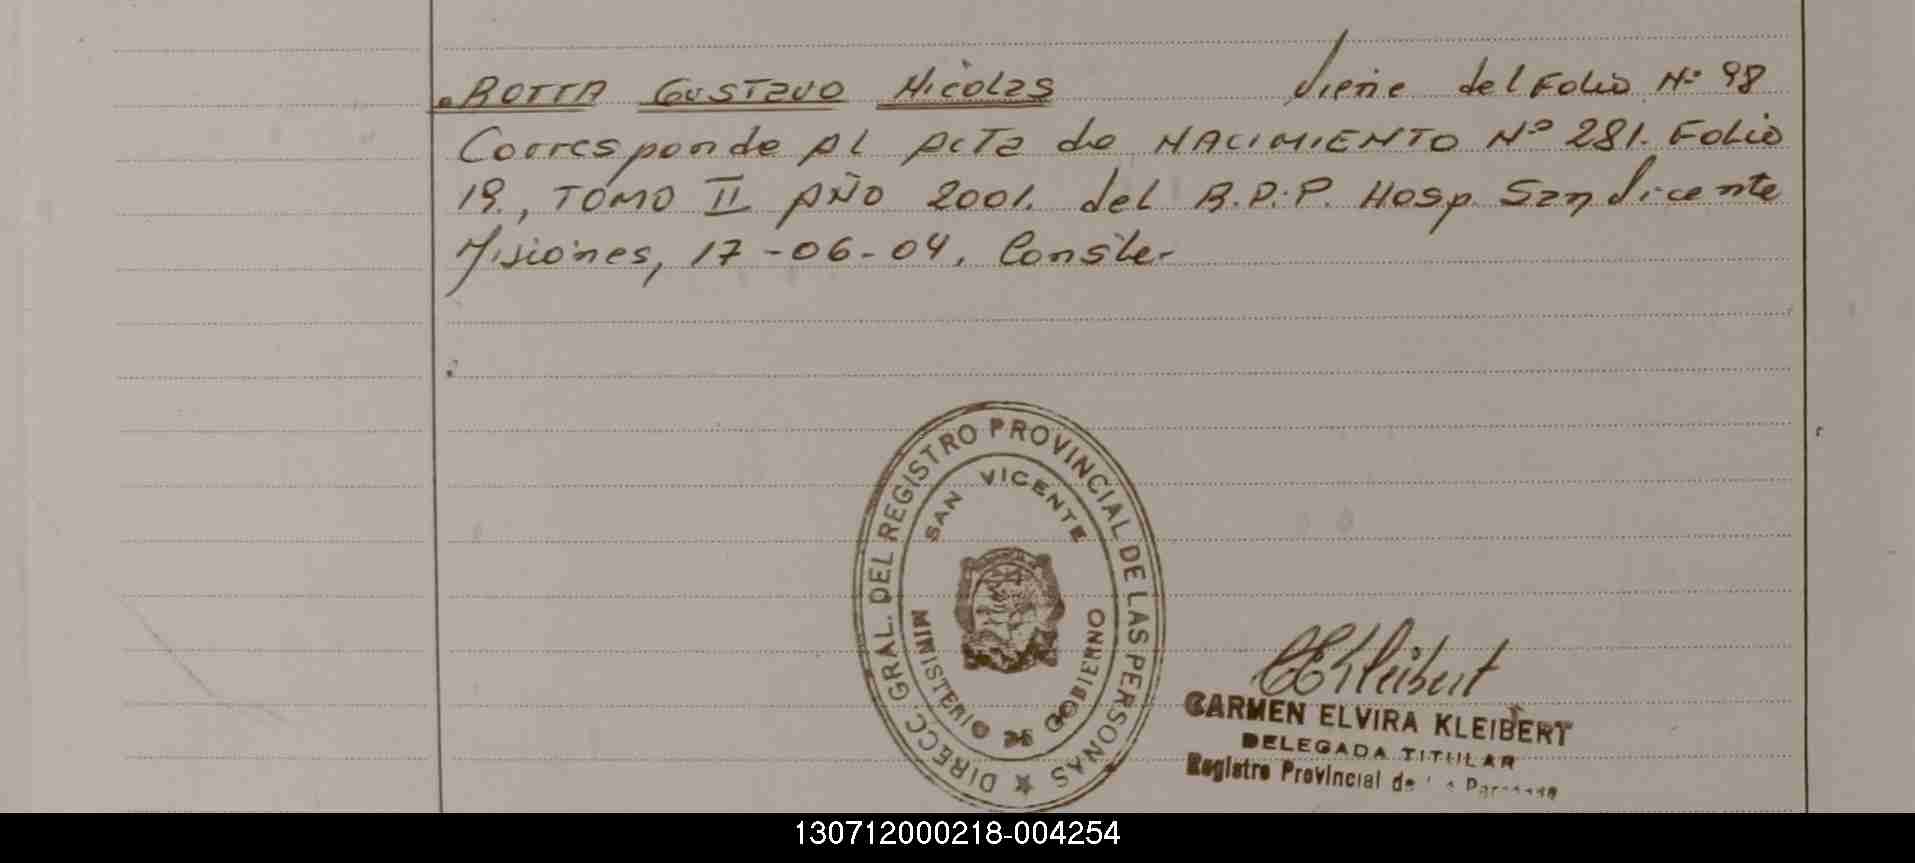 BOTTA GUSTAVO Nicolas Viene del Folio N° 98
Corresponde AL ACTA de NACIMIENTO N° 281. Folio
19., TOMO II AÑO 2001. del R.P.P. Hosp. San Vicente
Misiones, 17-06-04. Conste.-
DIRECC. GRAL. DEL REGISTRO PROVINCIAL DE LAS PERSONAS
SAN VICENTE
MINISTERIO DE GOBIERNO
CEKleibert
CARMEN ELVIRA KLEIBERT
DELEGADA TITULAR
Registro Provincial de
130712000218-004254